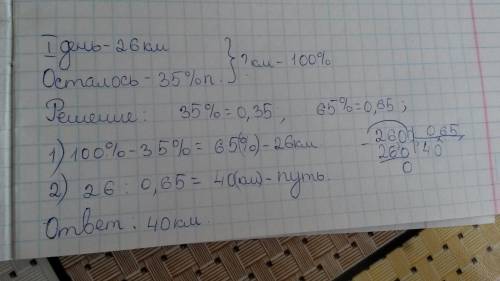 I день - 26 км
Осталось - 35% п. } ? км - 100%
Решение: 35% = 0,35, 65% = 0,65;
1) 100% - 35% = 65(%) - 26 км
2) 26 : 0,65 = 40(км) - путь.
Ответ. 40 км.
- 260 | 0,65
260 | 40
0